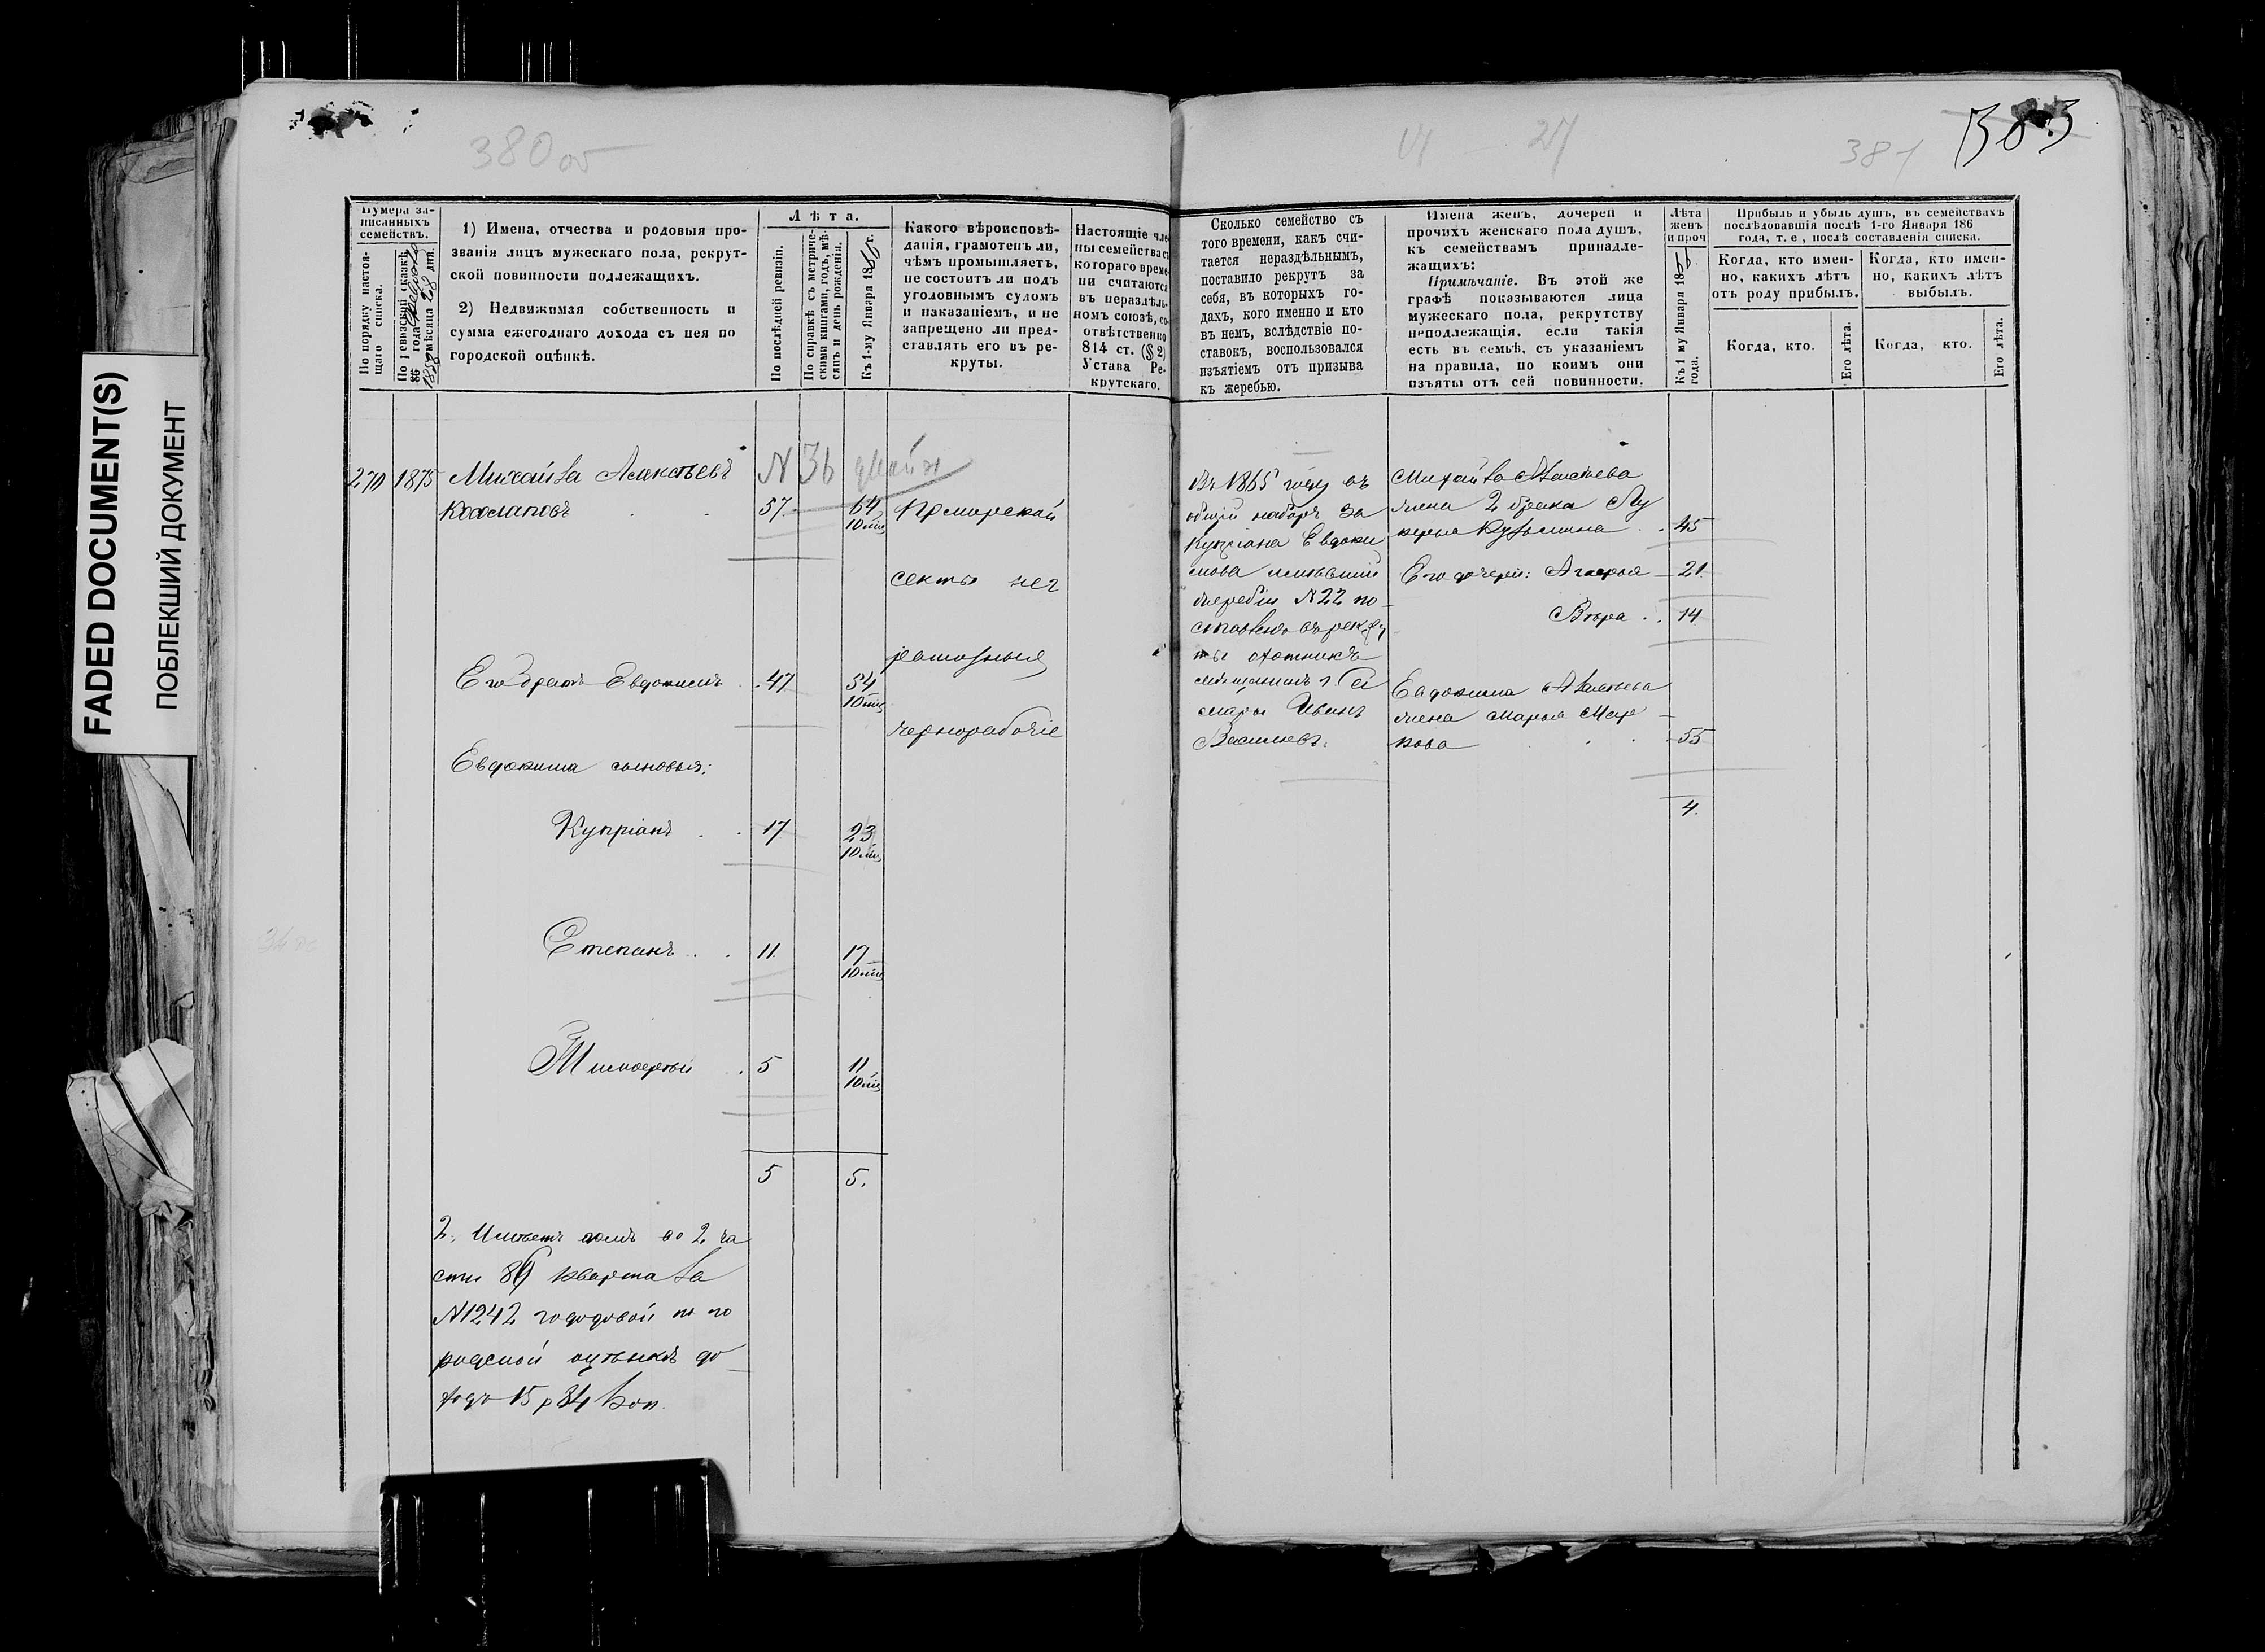 FADED DOCUMENT(S)
ПОБЛЕКШИЙ ДОКУМЕНТ
380 об
Нумера за-
писанныхъ
семействъ.
По порядку настоя-
щаго списка.
По ревизской сказкѣ
185 года
1858 мѣсяца дня.
1) Имена, отчества и родовыя про-
званія лицъ мужескаго пола, рекрут-
ской повинности подлежащихъ.
2) Недвижимая собственность и
сумма ежегоднаго дохода съ нея по
городской оцѣнкѣ.
Лѣта.
По послѣдней ревизіи.
По справкѣ съ метриче-
скими книгами, годъ, мѣ-
сяцъ и день рожденія.
Къ 1-му Января 1866 г.
Какого вѣроисповѣ-
данія, грамотенъ ли,
чѣмъ промышляетъ,
не состоитъ ли подъ
уголовнымъ судомъ
и наказаніемъ, и не
запрещено ли пред-
ставлять его въ ре-
круты.
Настоящіе чле-
ны семейства съ
котораго време-
ни считаются
въ нераздѣль-
номъ союзѣ, со-
отвѣтственно
814 ст. (§ 2)
Устава Ре-
крутскаго.
270 1875 Михайла Алексѣевъ N 36
Косолаповъ 57 64
10 мѣс
Поморской
секты нег
рамотныя
чернорабочіе
Его братъ Евдокимъ 47 54
10 мѣс
Евдокима сыновья:
Купріанъ 17 23
10 мѣс
Степанъ 11 17
10 мѣс
Тимоѳей 5 11
10 мѣс
5 5.
2. Имѣетъ домъ во 2 ча
сти 86 квартала
N1242 годовой по го
родской оцѣнкѣ до-
ходъ 15 р 84 коп.
27
381
Сколько семейство съ
того времени, какъ счи-
тается нераздѣльнымъ,
поставило рекрутъ за
себя, въ которыхъ го-
дахъ, кого именно и кто
въ немъ, вслѣдствіе по-
ставокъ, воспользовался
изъятіемъ отъ призыва
къ жеребью.
Имена женъ, дочерей и
прочихъ женскаго пола душъ,
къ семействамъ принадле-
жащихъ:
Примѣчаніе. Въ этой же
графѣ показываются лица
мужескаго пола, рекрутству
неподлежащія, если такія
есть въ семьѣ, съ указаніемъ
на правила, по коимъ они
изъяты отъ сей повинности.
Лѣта
женъ
и проч
Къ 1 му Января 1866
года.
Прибыль и убыль душъ, въ семействахъ
послѣдовавшія послѣ 1-го Января 186
года, т. е, послѣ составленія списка.
Когда, кто имен-
но, какихъ лѣтъ
отъ роду прибылъ.
Когда, кто имен-
но, какихъ лѣтъ
выбылъ.
Когда, кто.
Его лѣта.
Когда, кто.
Его лѣта.
Въ 1865 году въ
общій наборъ за
Купріана Евдоки
мова имѣвшій
жеребій N 22 по-
ставленъ въ рекру
ты охотникъ
мѣщанинъ г. Са
мары Иванъ
Васильевъ.
Михайла Алексѣева
жена 2 брака Лу
керья Кузьмина 45
Его дочери: Агафья 21
Вѣра 14
Евдокима Алексѣева
жена Марья Мар
кова 55
4.